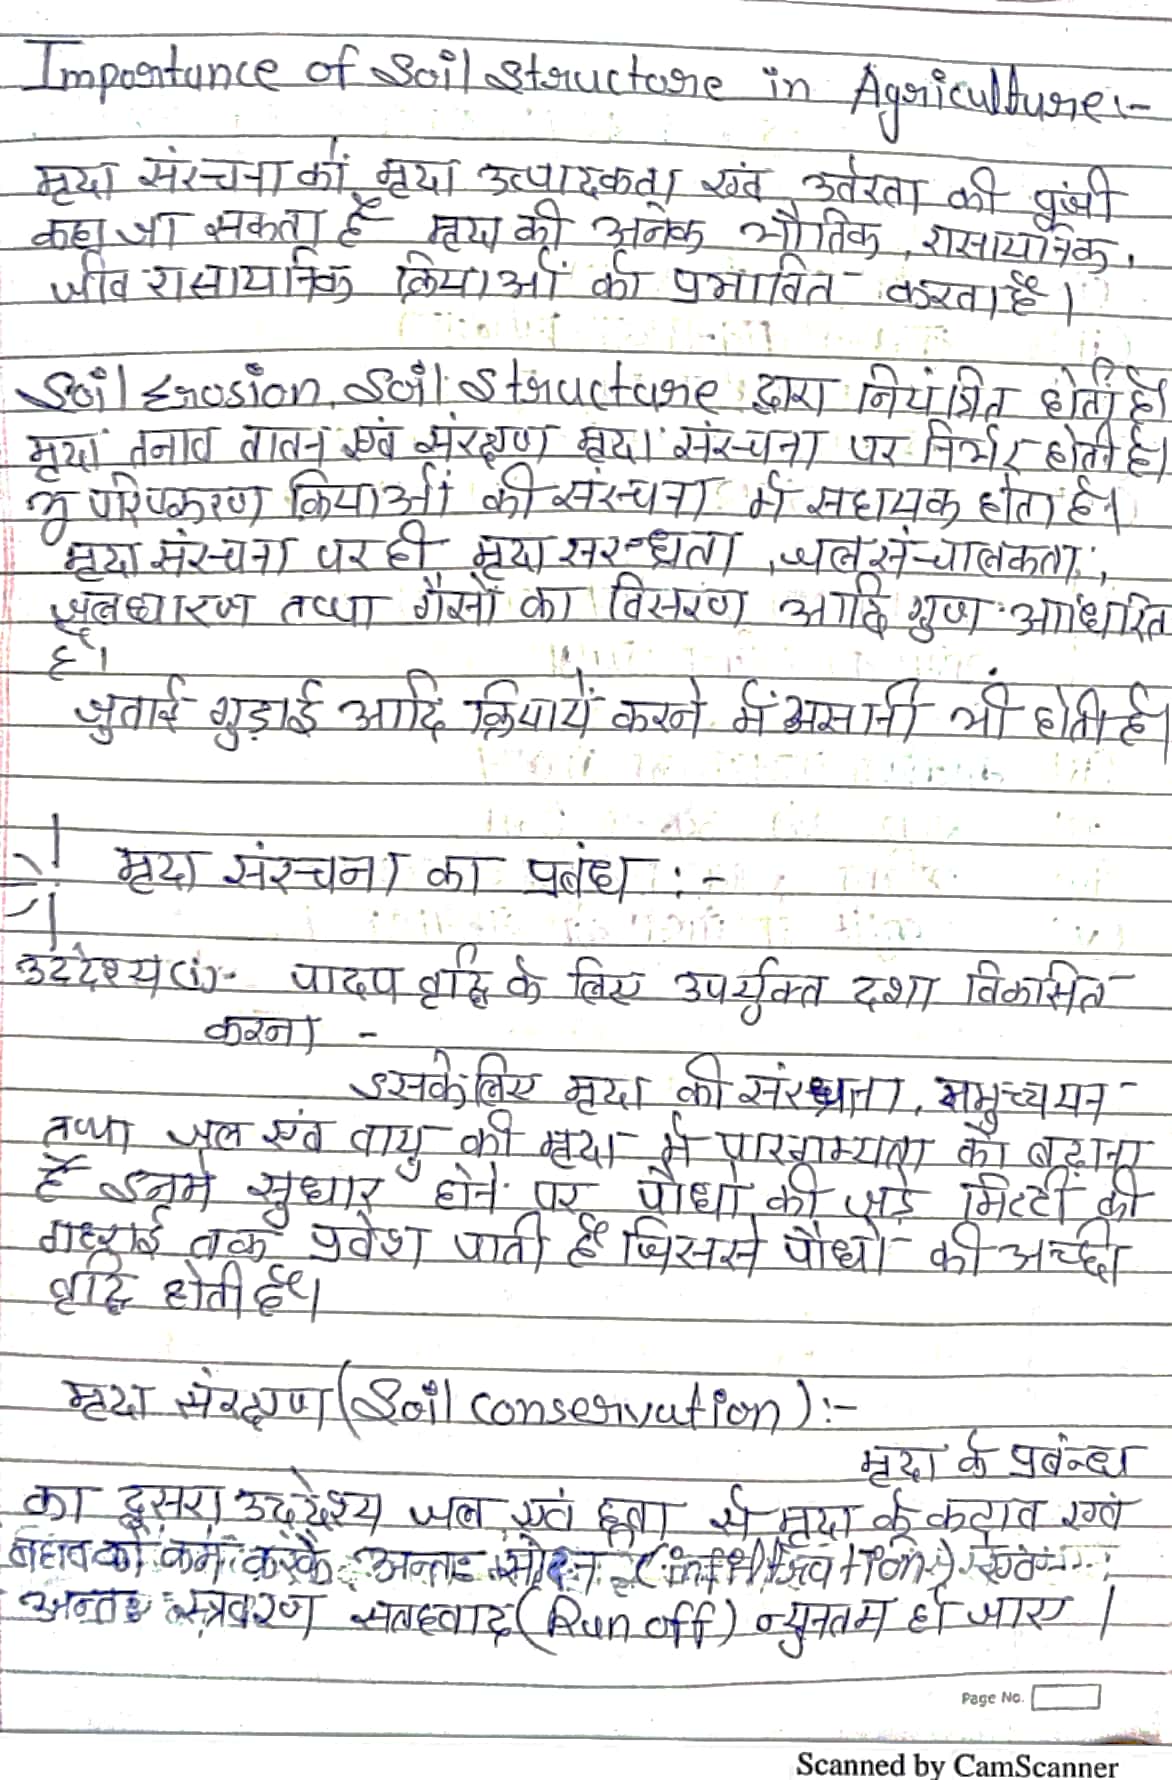 Importance of Soil Structure in Agriculture:-
मृदा संरचना को मृदा उत्पादकता एवं उर्वरता की कुंजी
कहा जा सकता है मृदा की अनेक भौतिक, रासायनिक,
जीव रासायनिक क्रियाओं को प्रभावित करता है।
Soil Erosion, Soil Structure द्वारा नियंत्रित होती है।
मृदा तनाव वातन एवं संरक्षण मृदा संरचना पर निर्भर होती है।
भू परिष्करण क्रियाओं की संरचना में सहायक होता है।
मृदा संरचना पर ही मृदा सरन्ध्रता, जल संचालकता,
जलधारण तथा गैसों का विसरण आदि गुण आधारित
है।
जुताई गुड़ाई आदि क्रियायें करने में असानी भी होती है।
मृदा संरचना का प्रबंध :-
उददेश्य (i)- पादप वृद्धि के लिए उपर्युक्त दशा विकसित
करना -
इसके लिए मृदा की संरध्रता, समुच्चयन
तथा जल एवं वायु की मृदा में पारगम्यता को बढ़ाना
है इनमे सुधार होने पर पौधो की जड़े मिटटी की
गहराई तक प्रवेश पाती है जिससे पौधो की अच्छी
वृद्धि होती है।
मृदा संरक्षण (Soil conservation) :-
मृदा के प्रबन्ध
का दूसरा उददेश्य जल एवं हवा से मृदा के कटाव एवं
बहाव को कम करके अन्तः (infiltration) एवं
अन्तः स्त्रवरण सतहवाद (Run off) न्युनतम हो जाए।
Page No.
Scanned by CamScanner